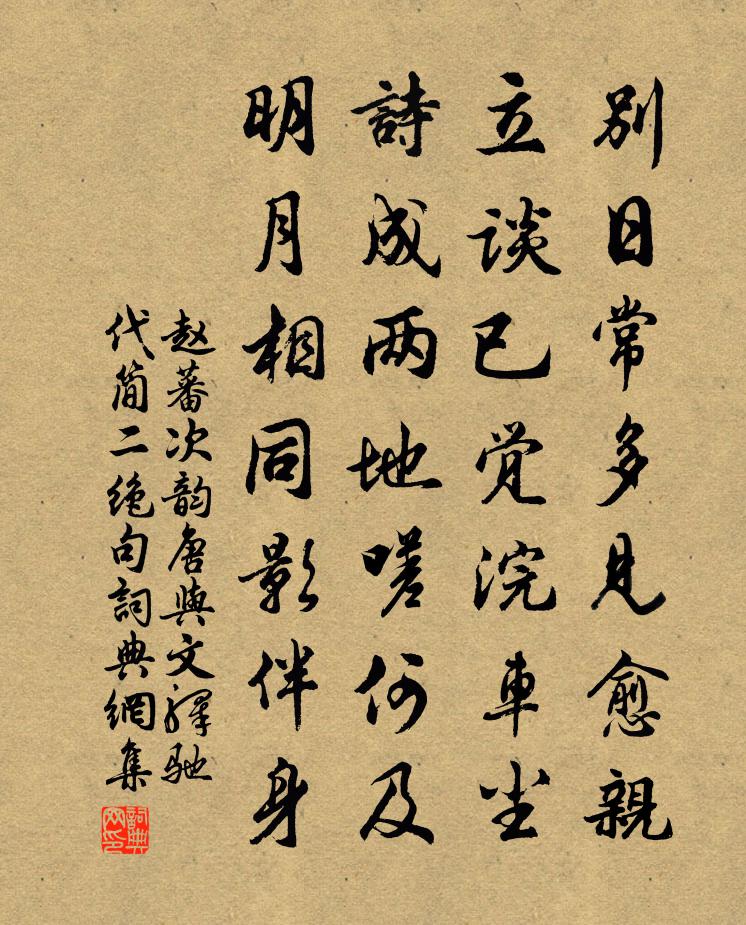 别日常多见愈親
立谈已觉浣車尘
詩成两地嗟何及
明月相同影伴身
赵蕃次韵唐與文驛驰
代简二绝句詞典網集
詞典网印